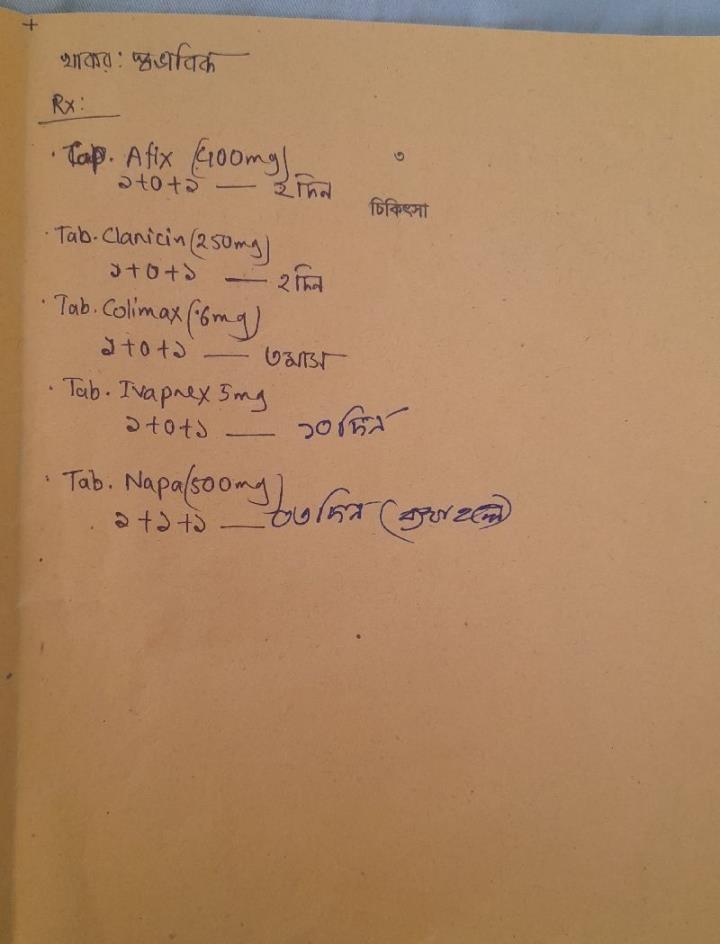 +
খাবার: স্বাভাবিক
Rx:
· Cap. Afix (400mg)
১+০+১ — ২দিন
৩
চিকিৎসা
· Tab. Clanicin (250mg)
১+০+১ — ২দিন
· Tab. Colimax (.6mg)
১+০+১ — ৩মাস
· Tab. Ivaprex 5mg
১+০+১ — ১০দিন
· Tab. Napa (500mg)
১+১+১ — ০৩দিন (ব্যথা হলে)